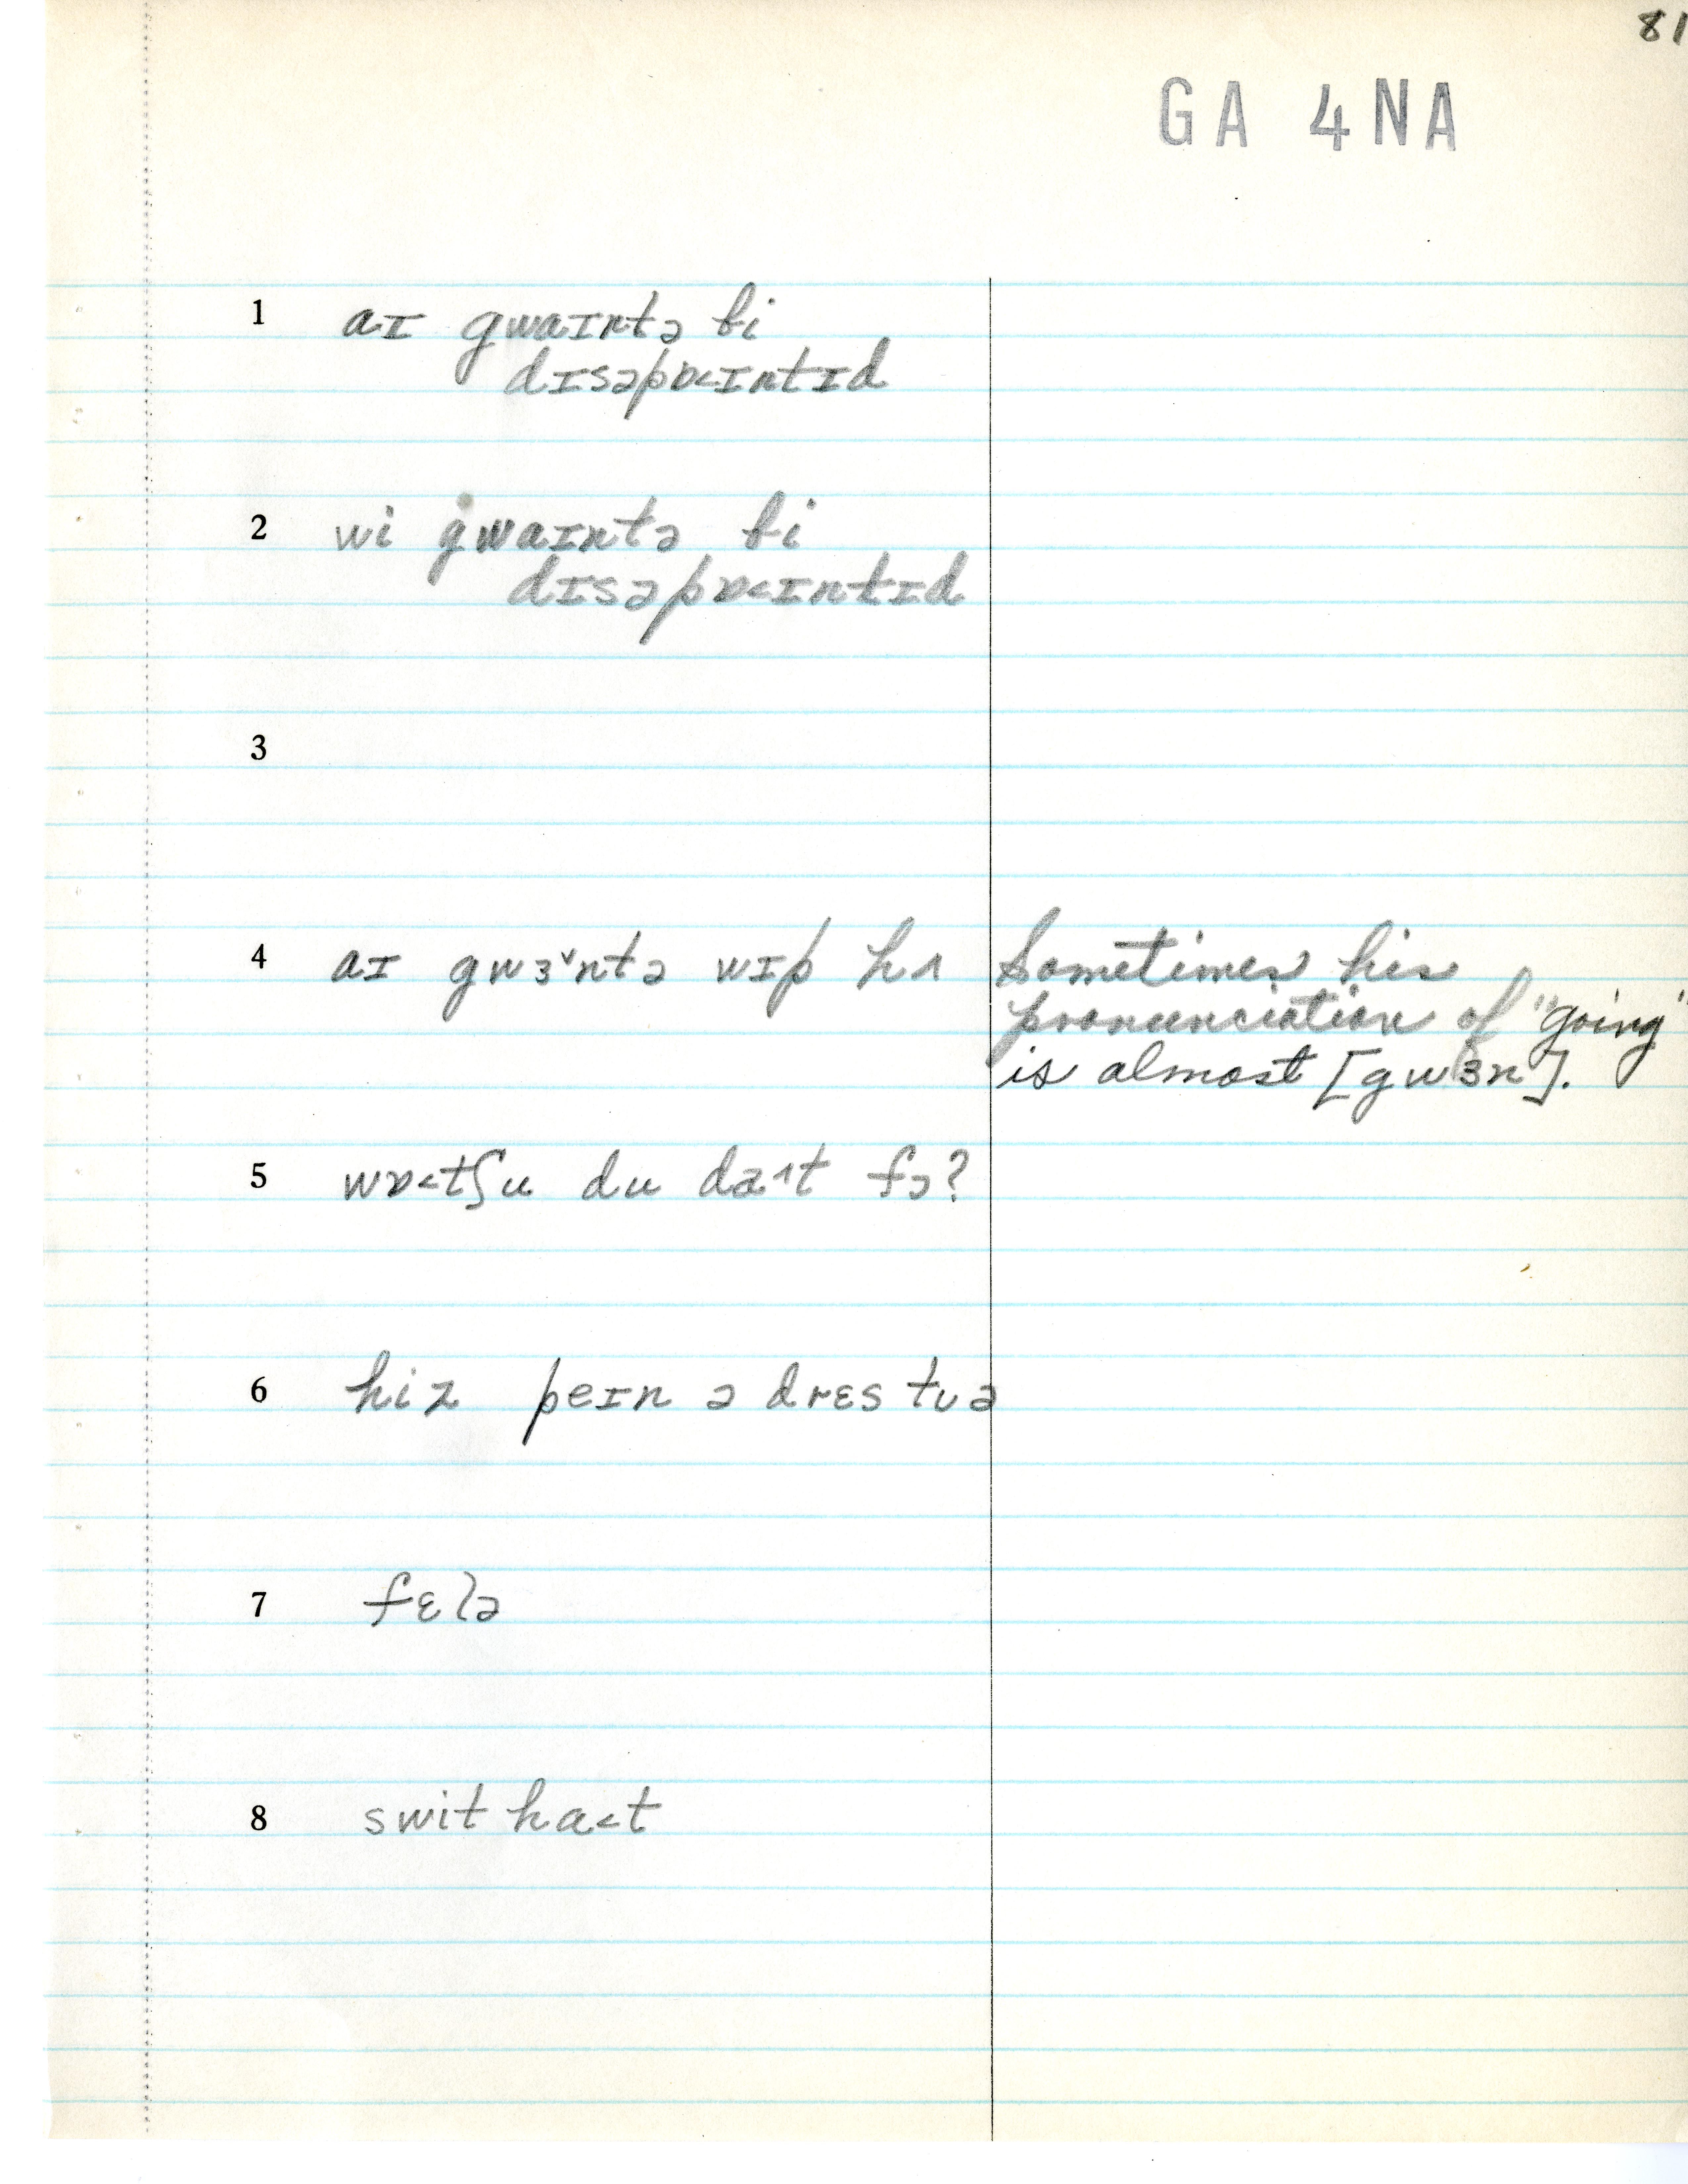 81
GA 4NA
1 aɪ gwaɪntə bi
dɪsəpɒ<ɪntɪd
2 wi gwaɪntə bi
dɪsəpɒ<ɪntɪd
3
4 aɪ gwɜˇntə wɪp hʌ Sometimes his
pronunciation of "going"
is almost [gwɜn].
5 wɒ<tʃu du da^t fɔ?
6 hiz peɪn ə drɛs tuə
7 fɛlə
8 swit ha<t